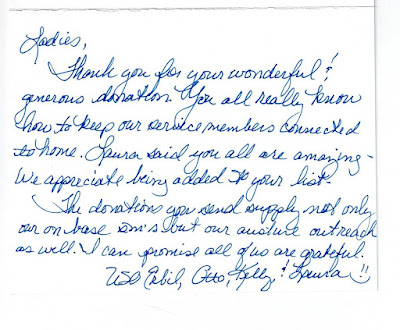 Ladies,
Thank you for your wonderful &
generous donation. You all really know
how to keep our service members connected
to home. Laura said you all are amazing -
We appreciate being added to your list.
The donations you send supply not only
our on base sm's but our austere outreach
as well. I can promise all of us are grateful.
USO Erbil, Otto, Kelly, & Laura !!